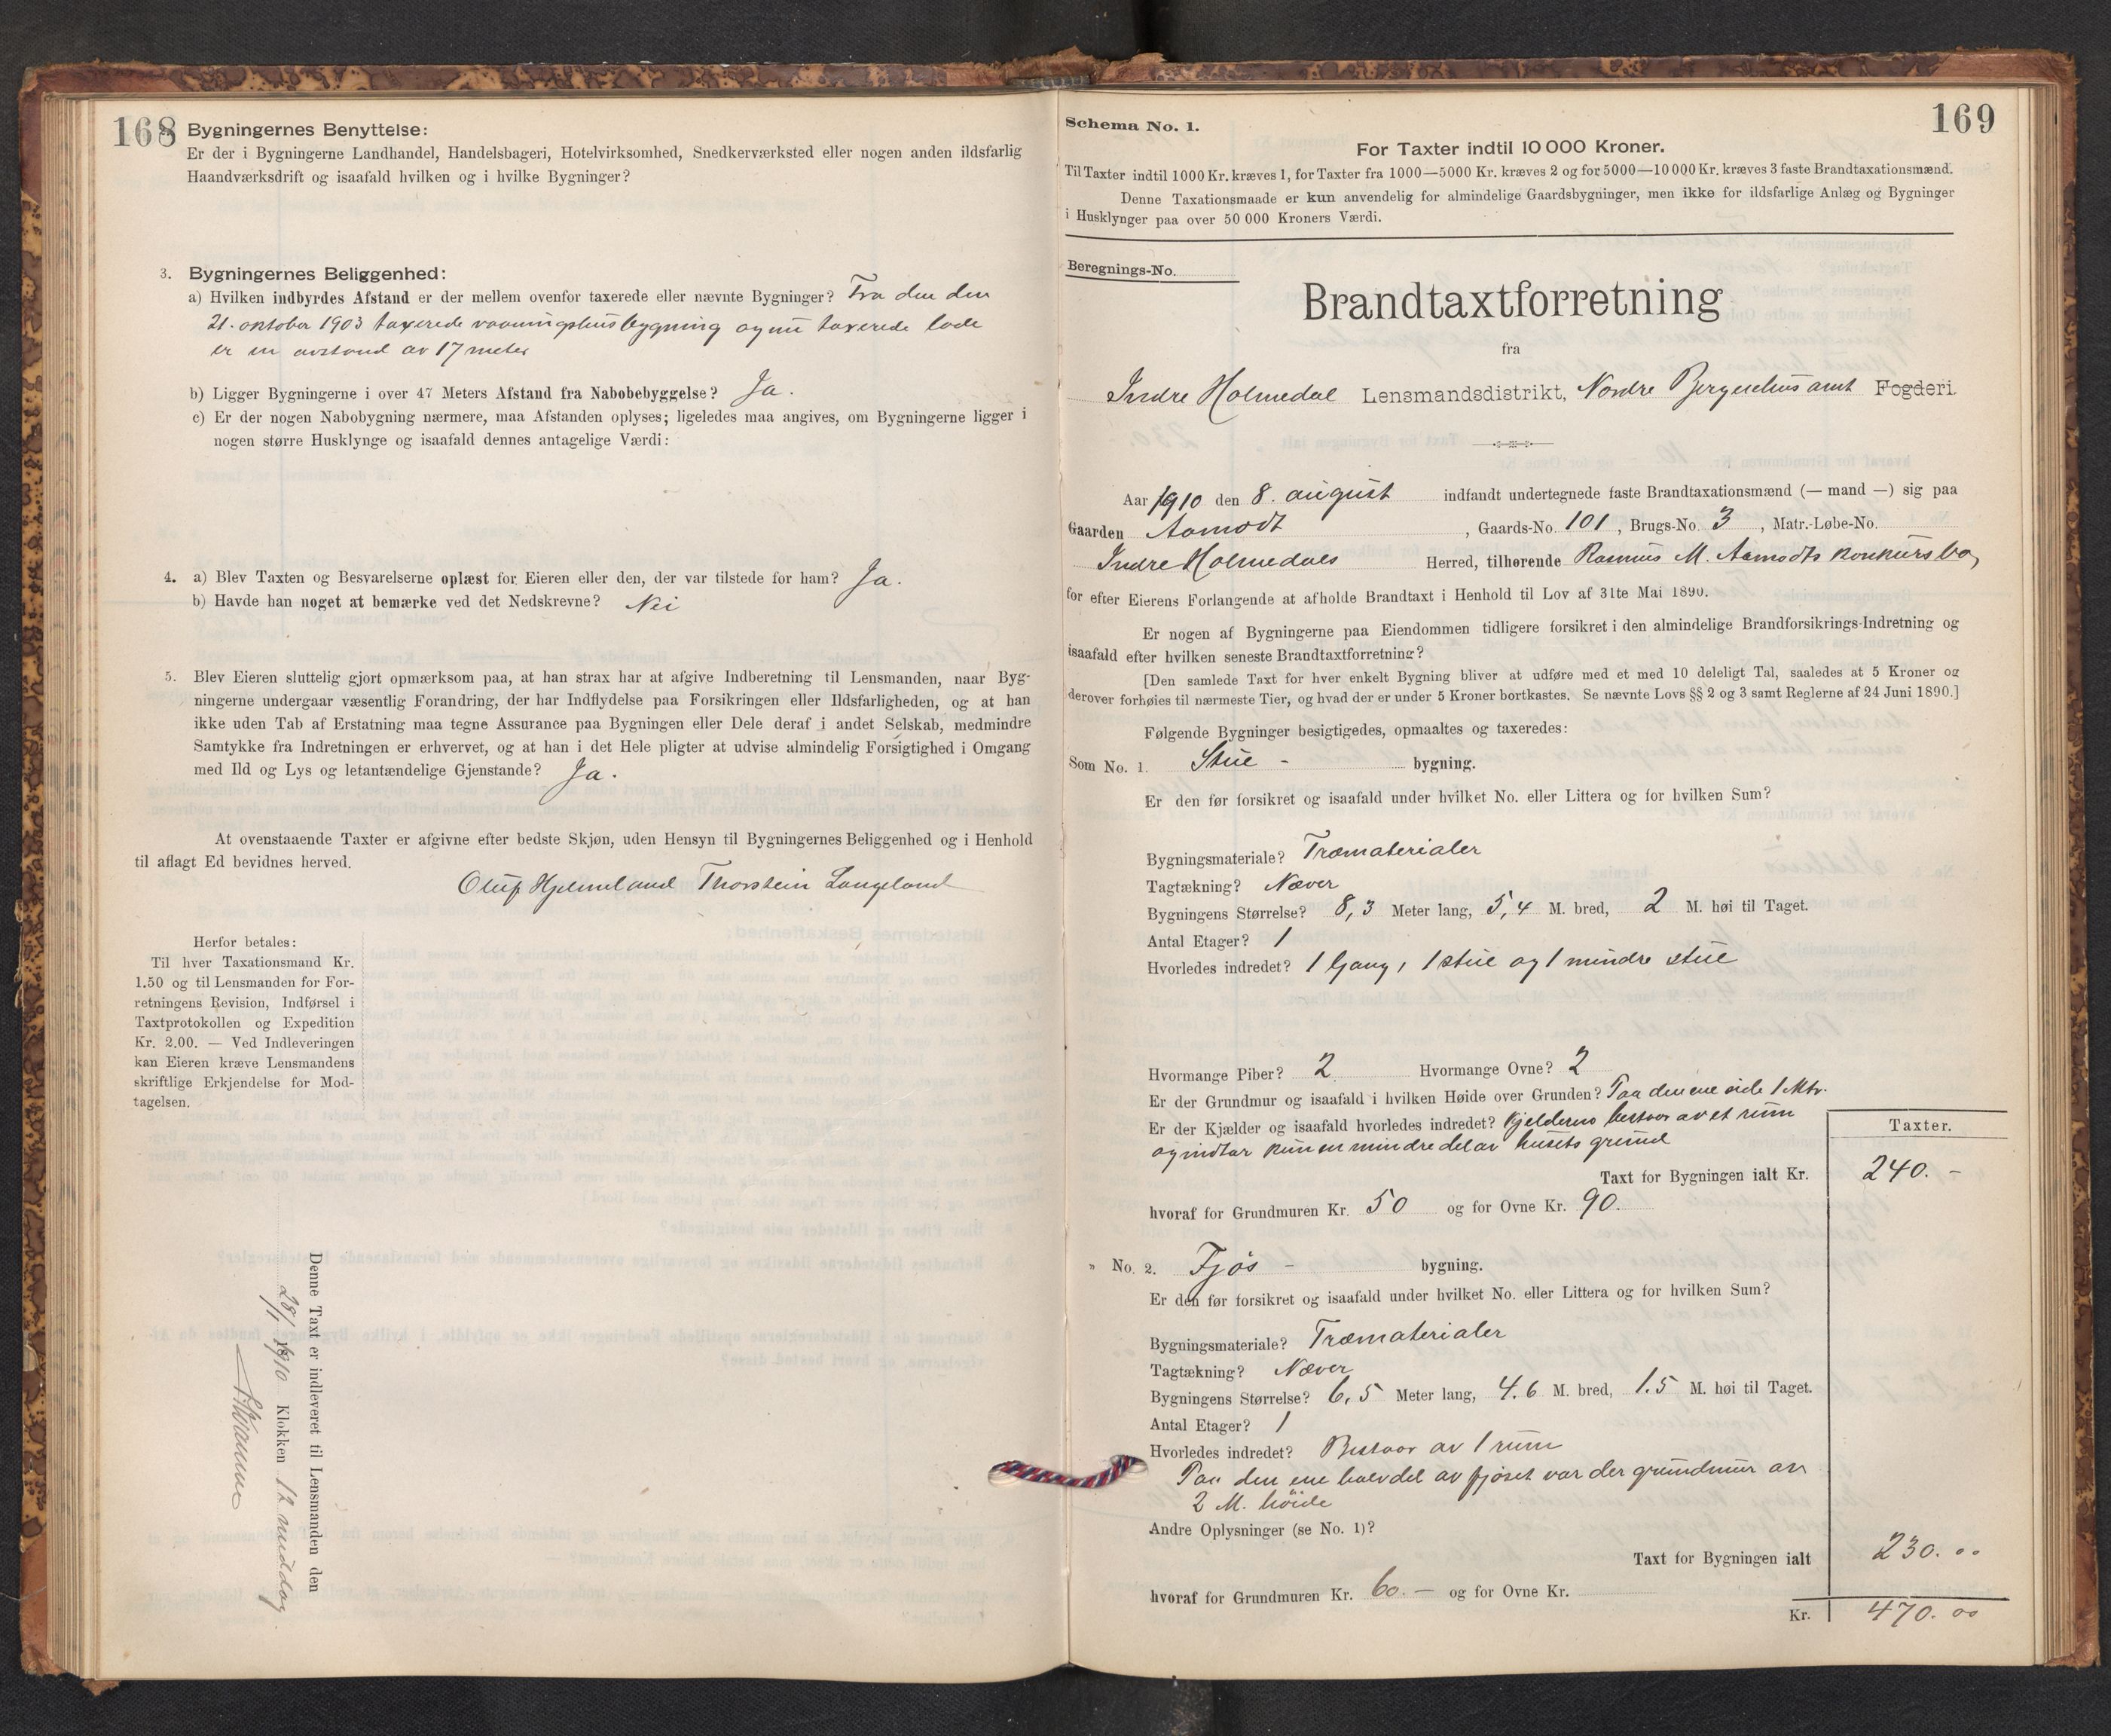 168
Bygningernes Benyttelse:
Er der i Bygningerne Landhandel, Handelsbageri, Hotelvirksomhed, Snedkerværksted eller nogen anden ildsfarlig
Haandværksdrift og isaafald hvilken og i hvilke Bygninger?
3. Bygningernes Beliggenhed:
a) Hvilken indbyrdes Afstand er der mellem ovenfor taxerede eller nævnte Bygninger? Fra den den
21. oktober 1903 taxerede vaaningshusbygning og nu taxerede lade
er en avstand av 17 meter
b) Ligger Bygningerne i over 47 Meters Afstand fra Nabobebyggelse? Ja.
c) Er der nogen Nabobygning nærmere, maa Afstanden oplyses; ligeledes maa angives, om Bygningerne ligger i
nogen større Husklynge og isaafald dennes antagelige Værdi:
4. a) Blev Taxten og Besvarelserne oplæst for Eieren eller den, der var tilstede for ham? Ja.
b) Havde han noget at bemærke ved det Nedskrevne? Nei
5. Blev Eieren sluttelig gjort opmærksom paa, at han strax har at afgive Indberetning til Lensmanden, naar Byg-
ningerne undergaar væsentlig Forandring, der har Indflydelse paa Forsikringen eller Ildsfarligheden, og at han
ikke uden Tab af Erstatning maa tegne Assurance paa Bygningen eller Dele deraf i andet Selskab, medmindre
Samtykke fra Indretningen er erhvervet, og at han i det Hele pligter at udvise almindelig Forsigtighed i Omgang
med Ild og Lys og letantændelige Gjenstande? Ja.
At ovenstaaende Taxter er afgivne efter bedste Skjøn, uden Hensyn til Bygningernes Beliggenhed og i Henhold
til aflagt Ed bevidnes herved.
Oluf Hjelmeland Thorstein Langeland
Herfor betales:
Til hver Taxationsmand Kr.
1.50 og til Lensmanden for For-
retningens Revision, Indførsel i
Taxtprotokollen og Expedition
Kr. 2.00. — Ved Indleveringen
kan Eieren kræve Lensmandens
skriftlige Erkjendelse for Mod-
tagelsen.
Denne Taxt er indleveret til Lensmanden den
1910 Klokken 12 middag
169
Schema No. 1.
For Taxter indtil 10 000 Kroner.
Til Taxter indtil 1000 Kr. kræves 1, for Taxter fra 1000—5000 Kr. kræves 2 og for 5000—10 000 Kr. kræves 3 faste Brandtaxationsmænd.
Denne Taxationsmaade er kun anvendelig for almindelige Gaardsbygninger, men ikke for ildsfarlige Anlæg og Bygninger
i Husklynger paa over 50 000 Kroners Værdi.
Beregnings-No.
Brandtaxtforretning
fra
Indre Holmedal Lensmandsdistrikt, Nordre Bergenhus amt Fogderi.
Aar 1910 den 8. august indfandt undertegnede faste Brandtaxationsmænd (— mand —) sig paa
Gaarden Aamodt, Gaards-No. 101, Brugs-No. 3, Matr.-Løbe-No.
Indre Holmedals Herred, tilhørende Rasmus M. Aamodts konkursbo,
for efter Eierens Forlangende at afholde Brandtaxt i Henhold til Lov af 31te Mai 1890.
Er nogen af Bygningerne paa Eiendommen tidligere forsikret i den almindelige Brandforsikrings-Indretning og
isaafald efter hvilken seneste Brandtaxtforretning?
[Den samlede Taxt for hver enkelt Bygning bliver at udføre med et med 10 deleligt Tal, saaledes at 5 Kroner og
derover forhøies til nærmeste Tier, og hvad der er under 5 Kroner bortkastes. Se nævnte Lovs §§ 2 og 3 samt Reglerne af 24 Juni 1890.]
Følgende Bygninger besigtigedes, opmaaltes og taxeredes:
Som No. 1. Stue - bygning.
Er den før forsikret og isaafald under hvilket No. eller Littera og for hvilken Sum?
Bygningsmateriale? Træmaterialer
Tagtækning? Næver
Bygningens Størrelse? 8,3 Meter lang, 5,4 M. bred, 2 M. høi til Taget.
Antal Etager? 1
Hvorledes indredet? 1 Gang, 1 stue og 1 mindre stue
Hvormange Piber? 2 Hvormange Ovne? 2
Er der Grundmur og isaafald i hvilken Høide over Grunden? Paa den ene side 1 Mtr.
Er der Kjælder og isaafald hvorledes indredet? Kjelderen bestaar av et rum
og indtar kun en mindre del av husets grund
Taxter.
Taxt for Bygningen ialt Kr. 240.-
hvoraf for Grundmuren Kr. 50 og for Ovne Kr. 90.
" No. 2. Fjøs - bygning.
Er den før forsikret og isaafald under hvilket No. eller Littera og for hvilken Sum?
Bygningsmateriale? Træmaterialer
Tagtækning? Næver
Bygningens Størrelse? 6,5 Meter lang, 4.6 M. bred, 1.5 M. høi til Taget.
Antal Etager? 1
Hvorledes indredet? Bestaar av 1 rum
Paa den ene halvdel av fjøset var der grundmur av
2 M. høide
Andre Oplysninger (se No. 1)?
Taxt for Bygningen ialt 230.00
hvoraf for Grundmuren Kr. 60.— og for Ovne Kr.
Kr. 470.00